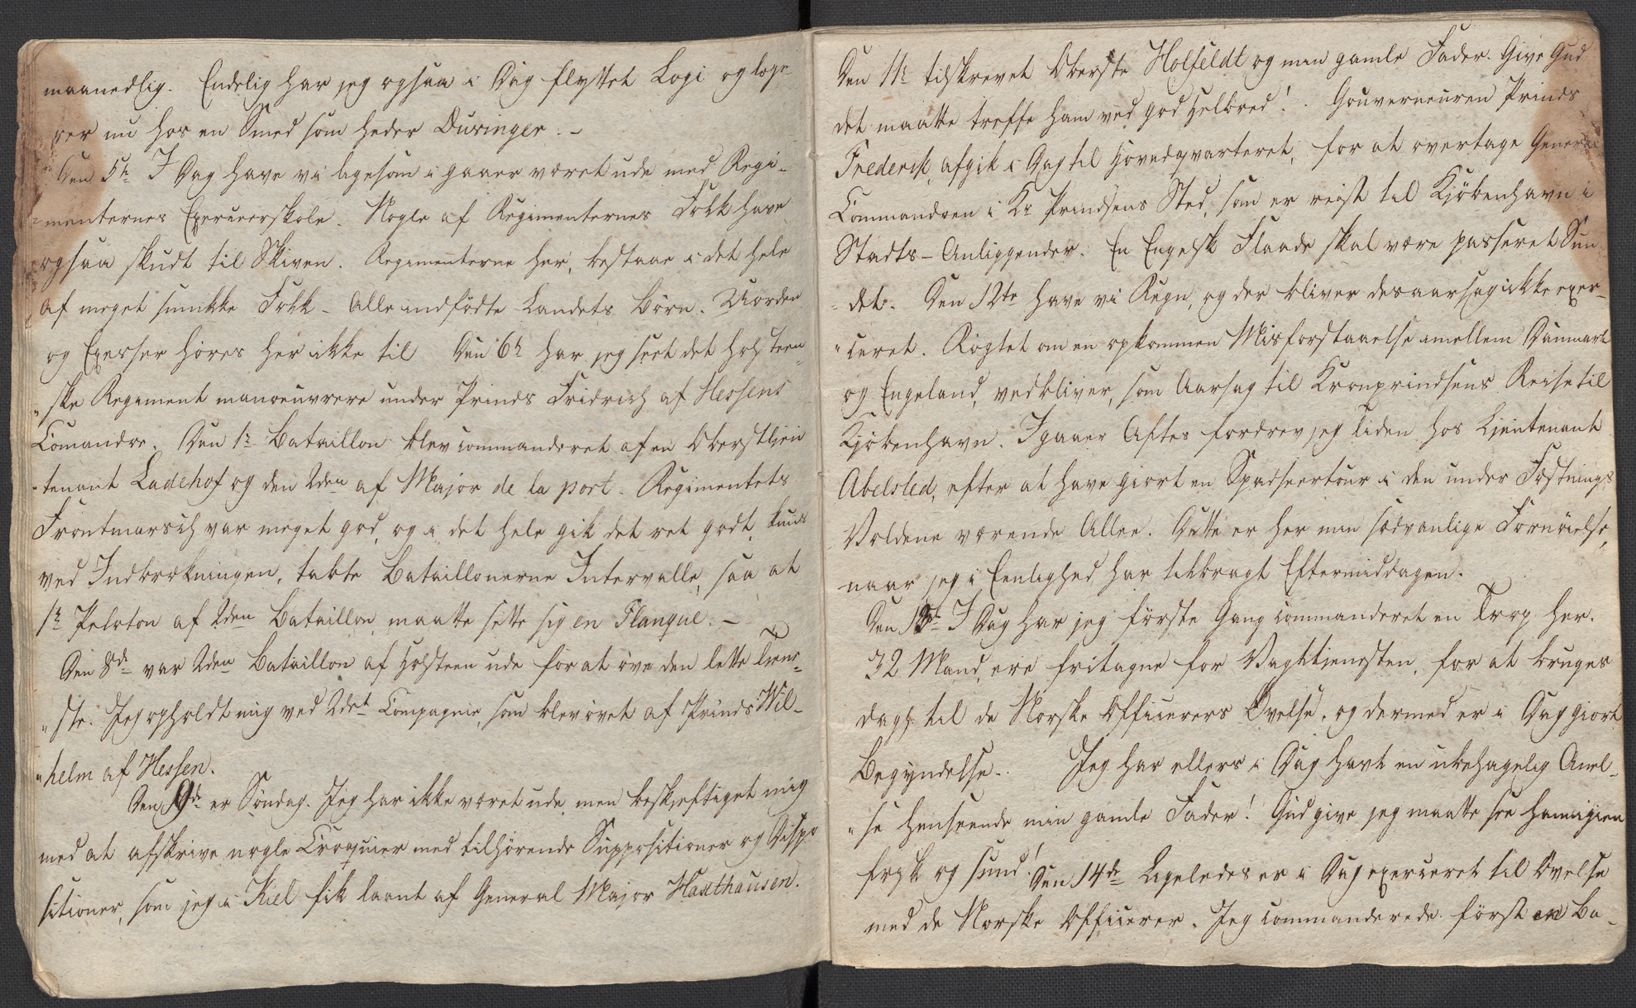 maanedlig. Endelig har jeg ogsaa i Dag flyttet Logi og loge-
rer nu hos en Smed som heder Düringer. -
Den 5te I Dag have vi ligesom i gaaer været ude med Regi-
menternes Exerceerskole. Nogle af Regimenternes Folk have
ogsaa skudt til Skiven. Regimenterne her, bestaae i det hele
af meget smukke Folk - Alle indfödte Landets Börn. Uorden
og Excesser höres her ikke til Den 6te har jeg seet det holsteen-
ske Regiment manoeuvrere under Prinds Fridrich af Hessens
Comandoe. Den 1te Bataillon blev commanderet af en Oberstlieu-
tenant Ladehof og den 2den af Major de la port. Regimentets
Frontmarsch var meget god, og i det hele gik det ret godt, kuns
ved Indbrækningen, tabte Bataillonerne Intervalle, saa at
1te Peloton af 2den Bataillon maatte sette sig en Flanque. -
Den 8de var 2den Bataillon af Holsteen ude for at öve den lette Tiene-
ste. Jeg opholdt mig ved 2det Compagnie, som blev övet af Prinds Wil-
helm af Hessen.
Den 9de er Söndag. Jeg har ikke været ude, men beskjeftiget mig
med at afskrive nogle Croquier med tilhörende Suppositioner og Dispo
sitioner, som jeg i Kiel fik laant af General Major Haxthausen.
Den 11te tilskrevet Oberste Holfeldt og min gamle Fader. Give Gud
det maatte treffe ham ved god Helbred! . Gouverneuren Prinds
Frederik, afgik i Dag til Hovedqvarteret, for at overtage General
Commandoen i Kr Prindsens Sted, som er reist til Kjöbenhavn i
Stadts-Anliggender. En Engelsk Flaade skal være passeret Sun
det. Den 12te have vi Regn, og der bliver desaarsag ikke exer-
ceret. Rögtet om en opkommen Misforstaaelse imellem Danmark
og Engeland, vedbliver, som Aarsag til Kronprindsens Reise til
Kjöbenhavn. I gaaer Aftes fordrev jeg Tiden hos Lieutenant
Abelsted, efter at have giort en Spadseertour i den under Fæstnings
Voldene værende Allee. Dette er her min sædvanlige Fornöielse,
naar jeg i Eenlighed har tilbragt Eftermiddagen.
Den 13de I Dag har jeg förste Gang commanderet en Trop her.
32 Mand, ere fritagne for Vagttjenesten, for at bruges
dagl: til de Norske Officerers Övelse, og dermed er i Dag giort
Begyndelse. Jeg har ellers i Dag havt en ubehagelig Anel-
se henseende min gamle Fader! Gud give jeg maatte see ham igien
frisk og sund! Den 14de Ligeledes er i Dag exerceret til Övelse
med de Norske Officerer. Jeg commanderede först en Ba-